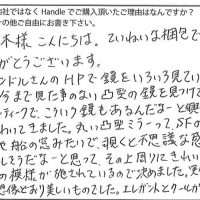 社ではなく Handle でご購入頂いたご理由はなんですか?
の他ご自由にお書き下さい。
木様 こんにちは。ていねいな梱包で
がとうございます。
ンドルさんのHPで鏡をいろいろ見てい
今まで見た事のない凸型の鏡を見つけて
ティークで、こういう鏡もあるんだなーと興
わいてきました。丸い凸型ミラーって、SFの
や船の窓みたいで、覗くと不思議な感
しそうだなーと思って、その上周りにきれい
の模様が施されているので求めました。実
想像どおり美しいものでした。エレガントとクールが